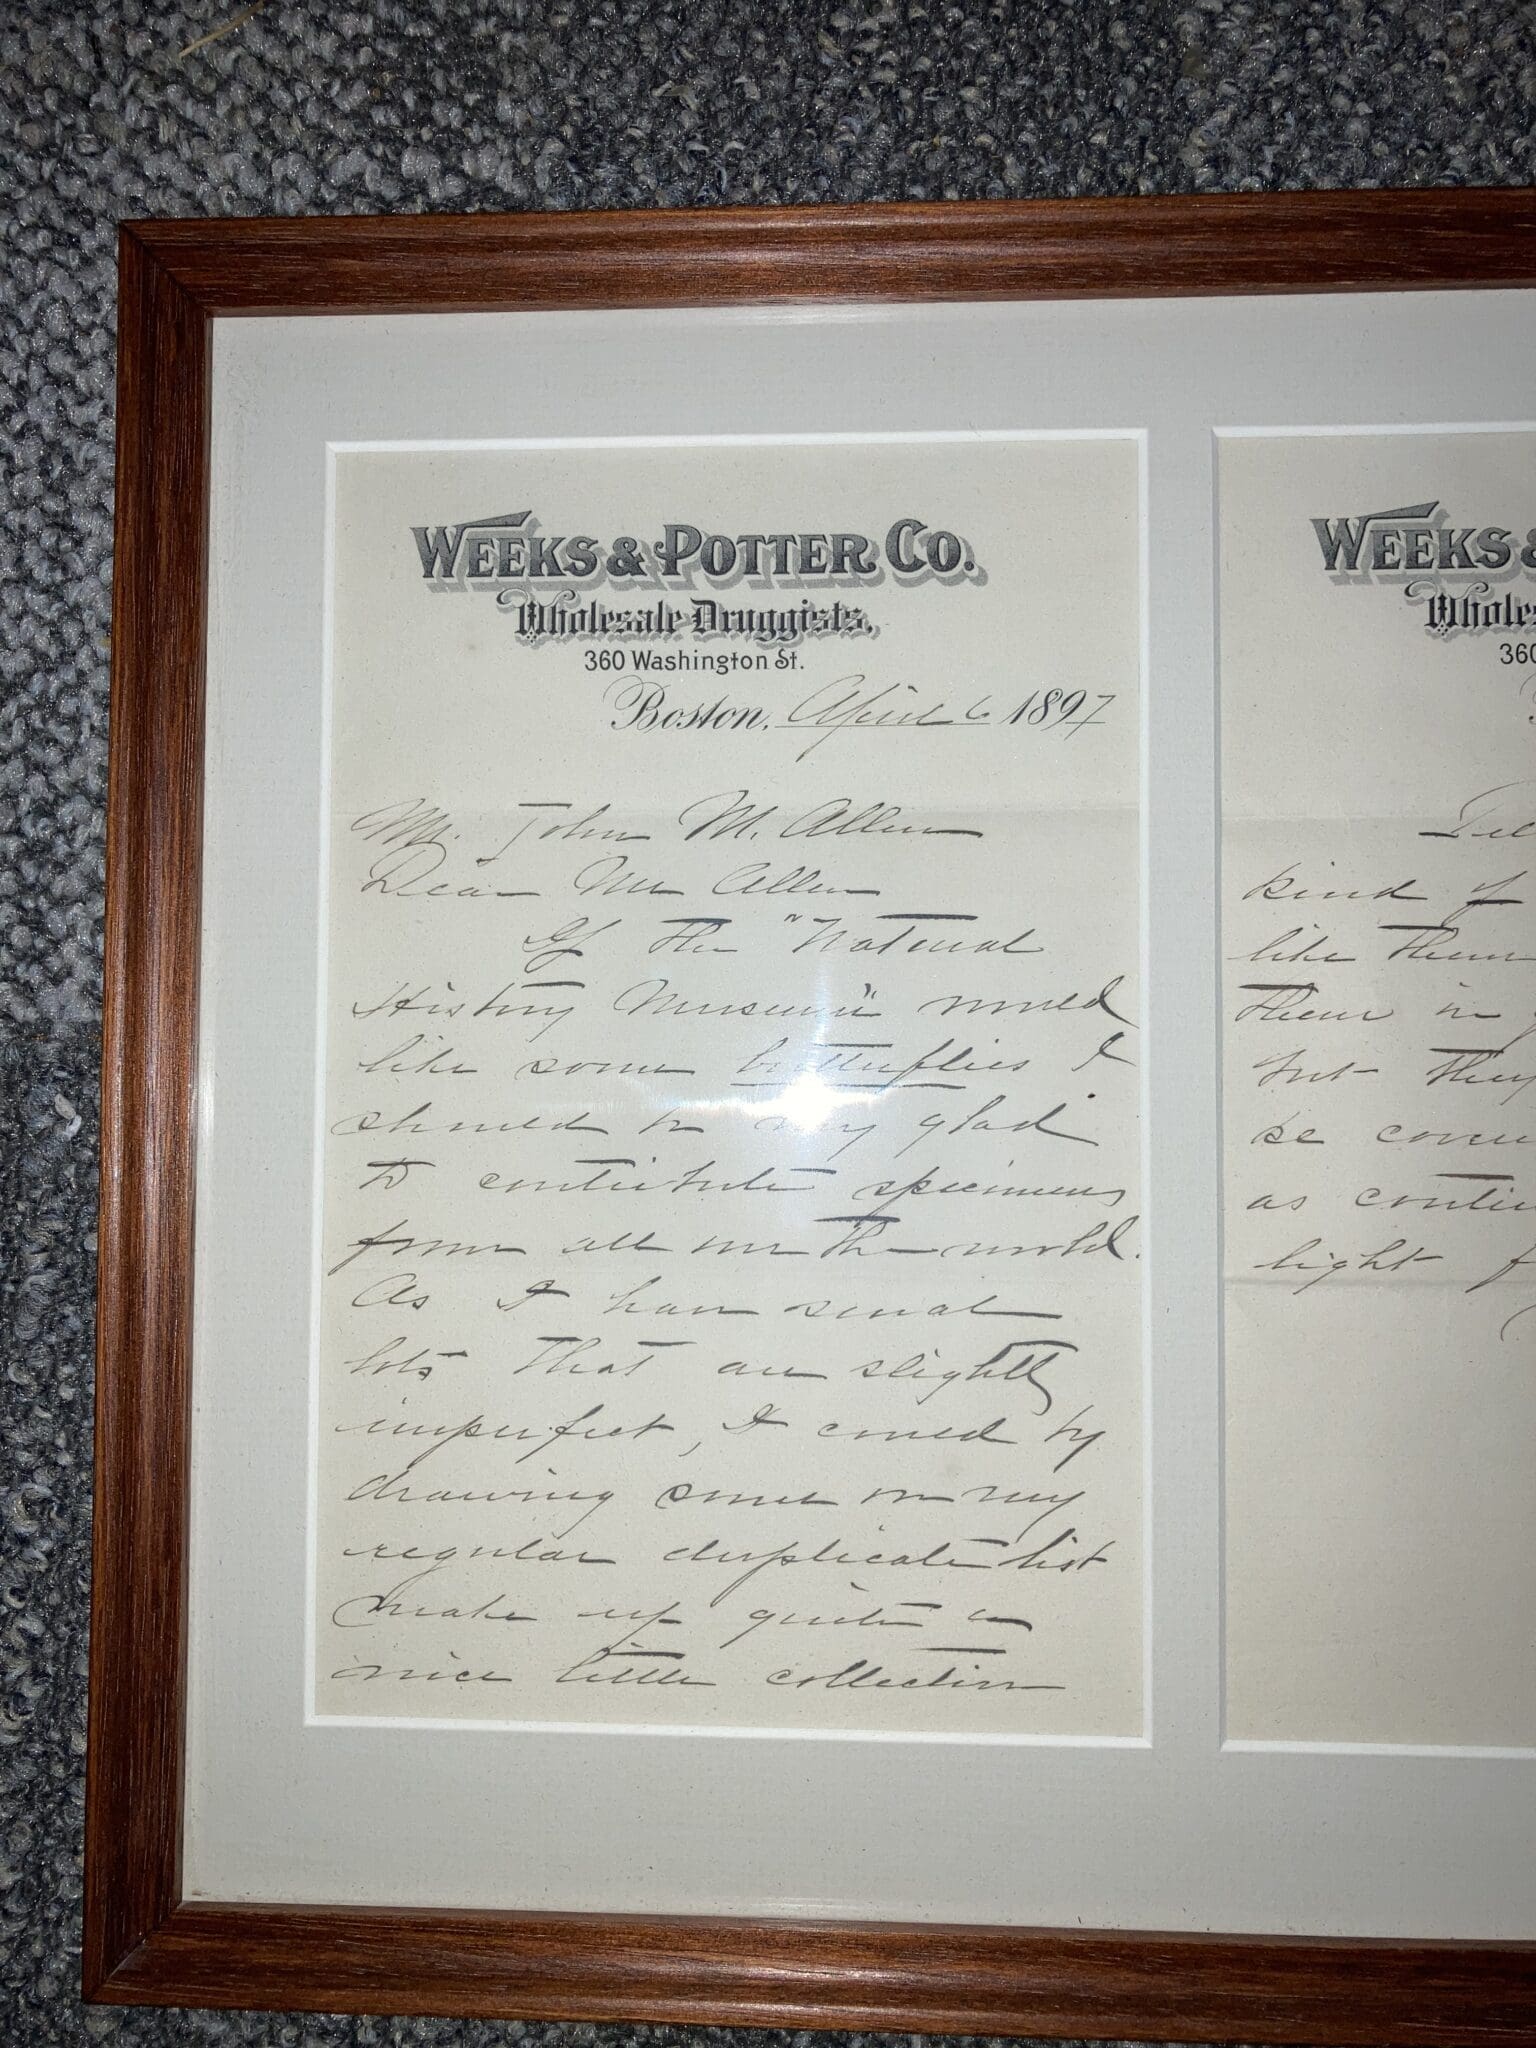 WEEKS & POTTER CO.
Wholesale Druggists.
360 Washington St.
Boston, April 6 1897
Mr. John M. Allen
Dear Mr Allen
If the "Natural
History Museum" would
like some butterflies I
should be very glad
to contribute specimens
from all over the world.
As I have several
lots that are slightly
imperfect, I could by
drawing some on my
regular duplicate list
make up quite a
nice little collection
WEEKS &
Wholes
360
kind of
like them
them in
but they
be cover
as contin
light f